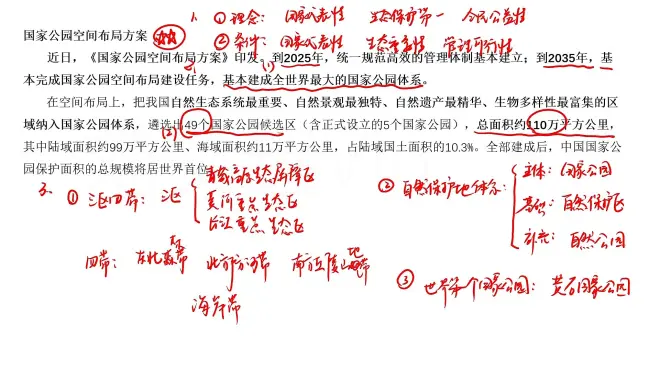 1. ① 理念: 国家代表性 生态保护第一 全民公益性
② 条件: 国家代表性 生态重要性 管理可行性
国家公园空间布局方案
近日,《国家公园空间布局方案》印发。到2025年,统一规范高效的管理体制基本建立;到2035年,基
本完成国家公园空间布局建设任务,基本建成全世界最大的国家公园体系。
在空间布局上,把我国自然生态系统最重要、自然景观最独特、自然遗产最精华、生物多样性最富集的区
域纳入国家公园体系,遴选出49个国家公园候选区(含正式设立的5个国家公园),总面积约110万平方公里,
其中陆域面积约99万平方公里、海域面积约11万平方公里,占陆域国土面积的10.3%。全部建成后,中国国家公
园保护面积的总规模将居世界首位。
3. ① 三区四带: 三区
青藏高原生态屏障区
黄河重点生态区
长江重点生态区
四带: 东北森林带 北方防沙带 南方丘陵山地带
海岸带
② 自然保护地体系:
主体: 国家公园
基础: 自然保护区
补充: 自然公园
③ 世界第一个国家公园: 黄石国家公园